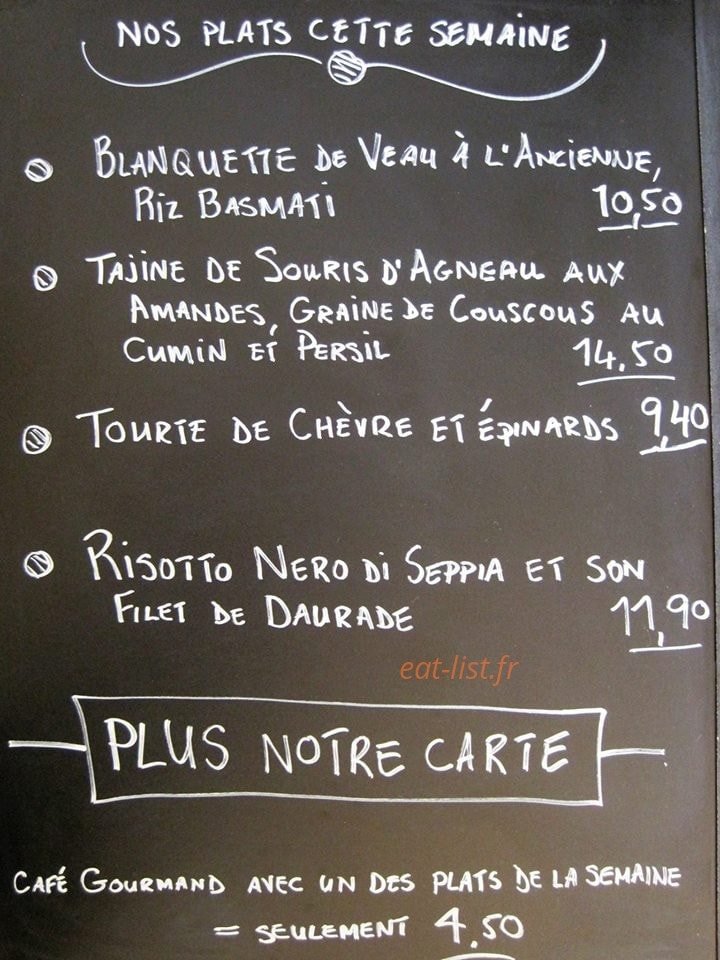 NOS PLATS CETTE SEMAINE
BLANQUETTE DE VEAU À L'ANCIENNE,
RIZ BASMATI 10,50
TAJINE DE SOURIS D'AGNEAU AUX
AMANDES, GRAINE DE COUSCOUS AU
CUMIN ET PERSIL 14,50
TOURTE DE CHÈVRE ET ÉPINARDS 9,40
RISOTTO NERO DI SEPPIA ET SON
FILET DE DAURADE 11,90
eat-list.fr
PLUS NOTRE CARTE
CAFÉ GOURMAND AVEC UN DES PLATS DE LA SEMAINE
= SEULEMENT 4.50